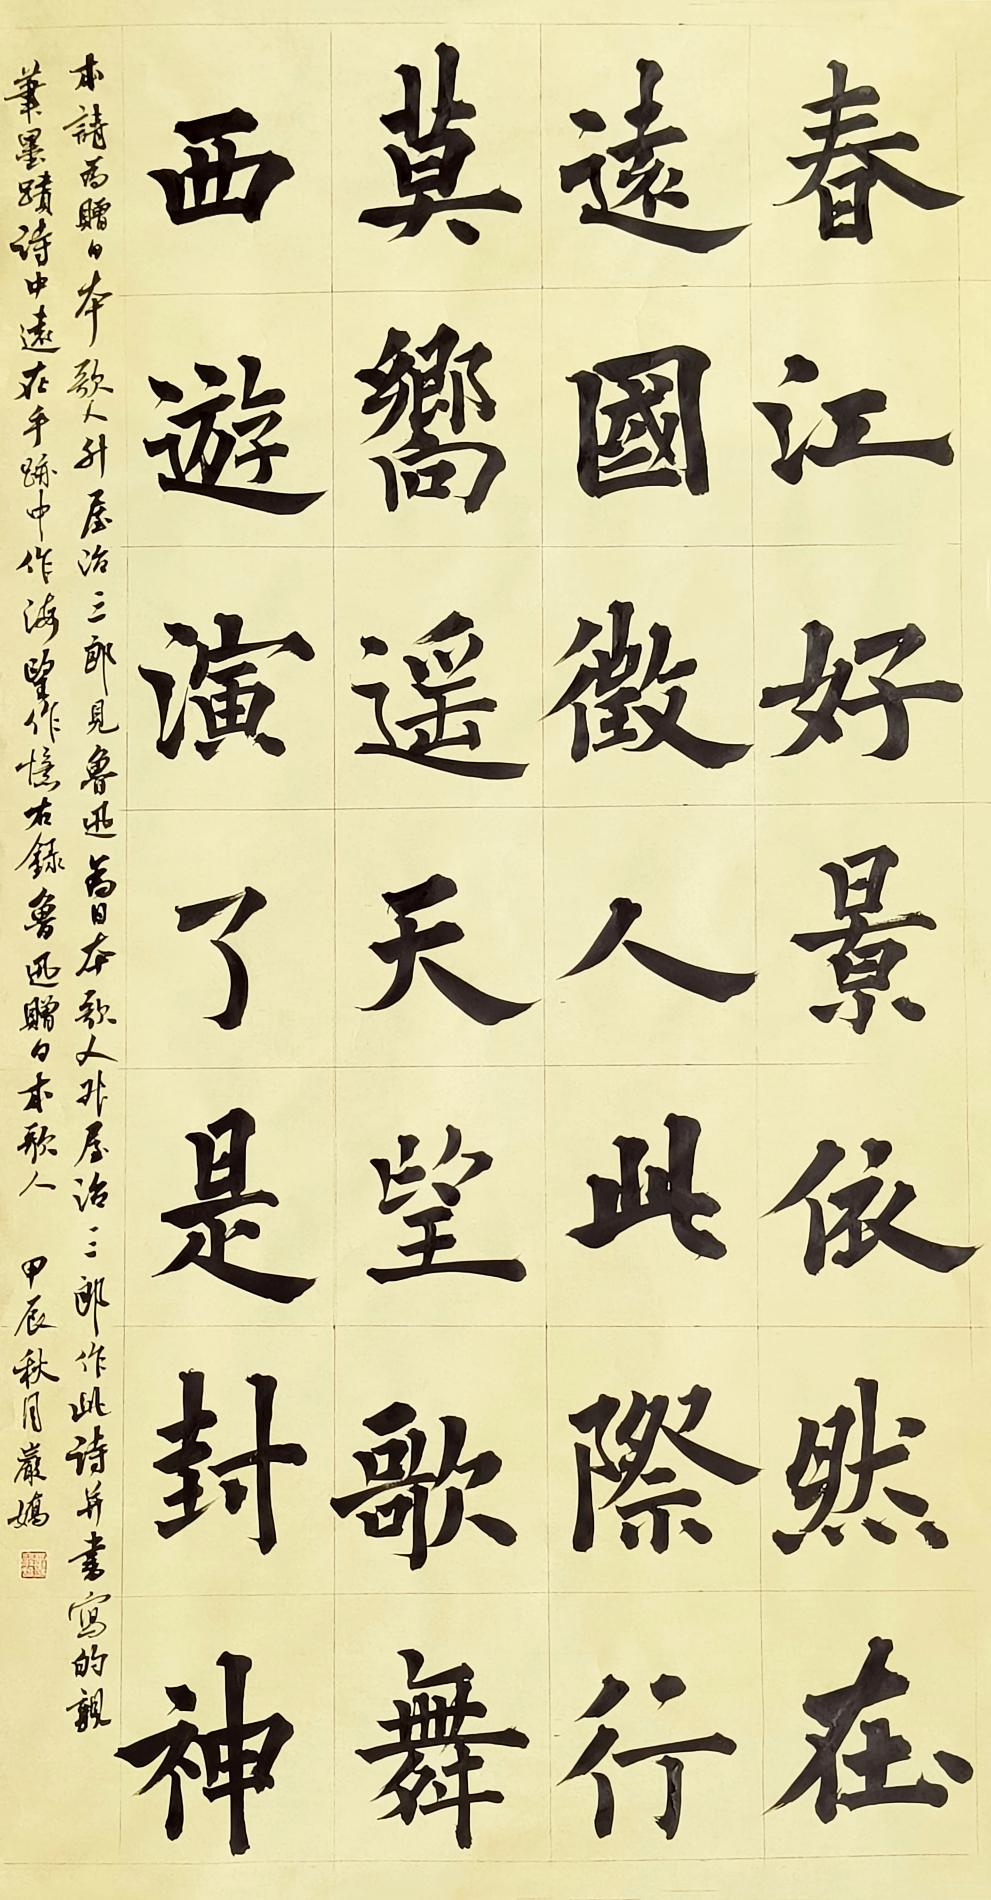 春江好景依然在
遠國徵人此際行
莫嚮遥天望歌舞
西遊演了是封神
本詩為贈日本歌人升屋治三郎見魯迅為日本歌人升屋治三郎作此詩并書寫的親
筆墨蹟詩中遠在手跡中作海望作憶右録魯迅贈日本歌人 甲辰秋月嚴嬌